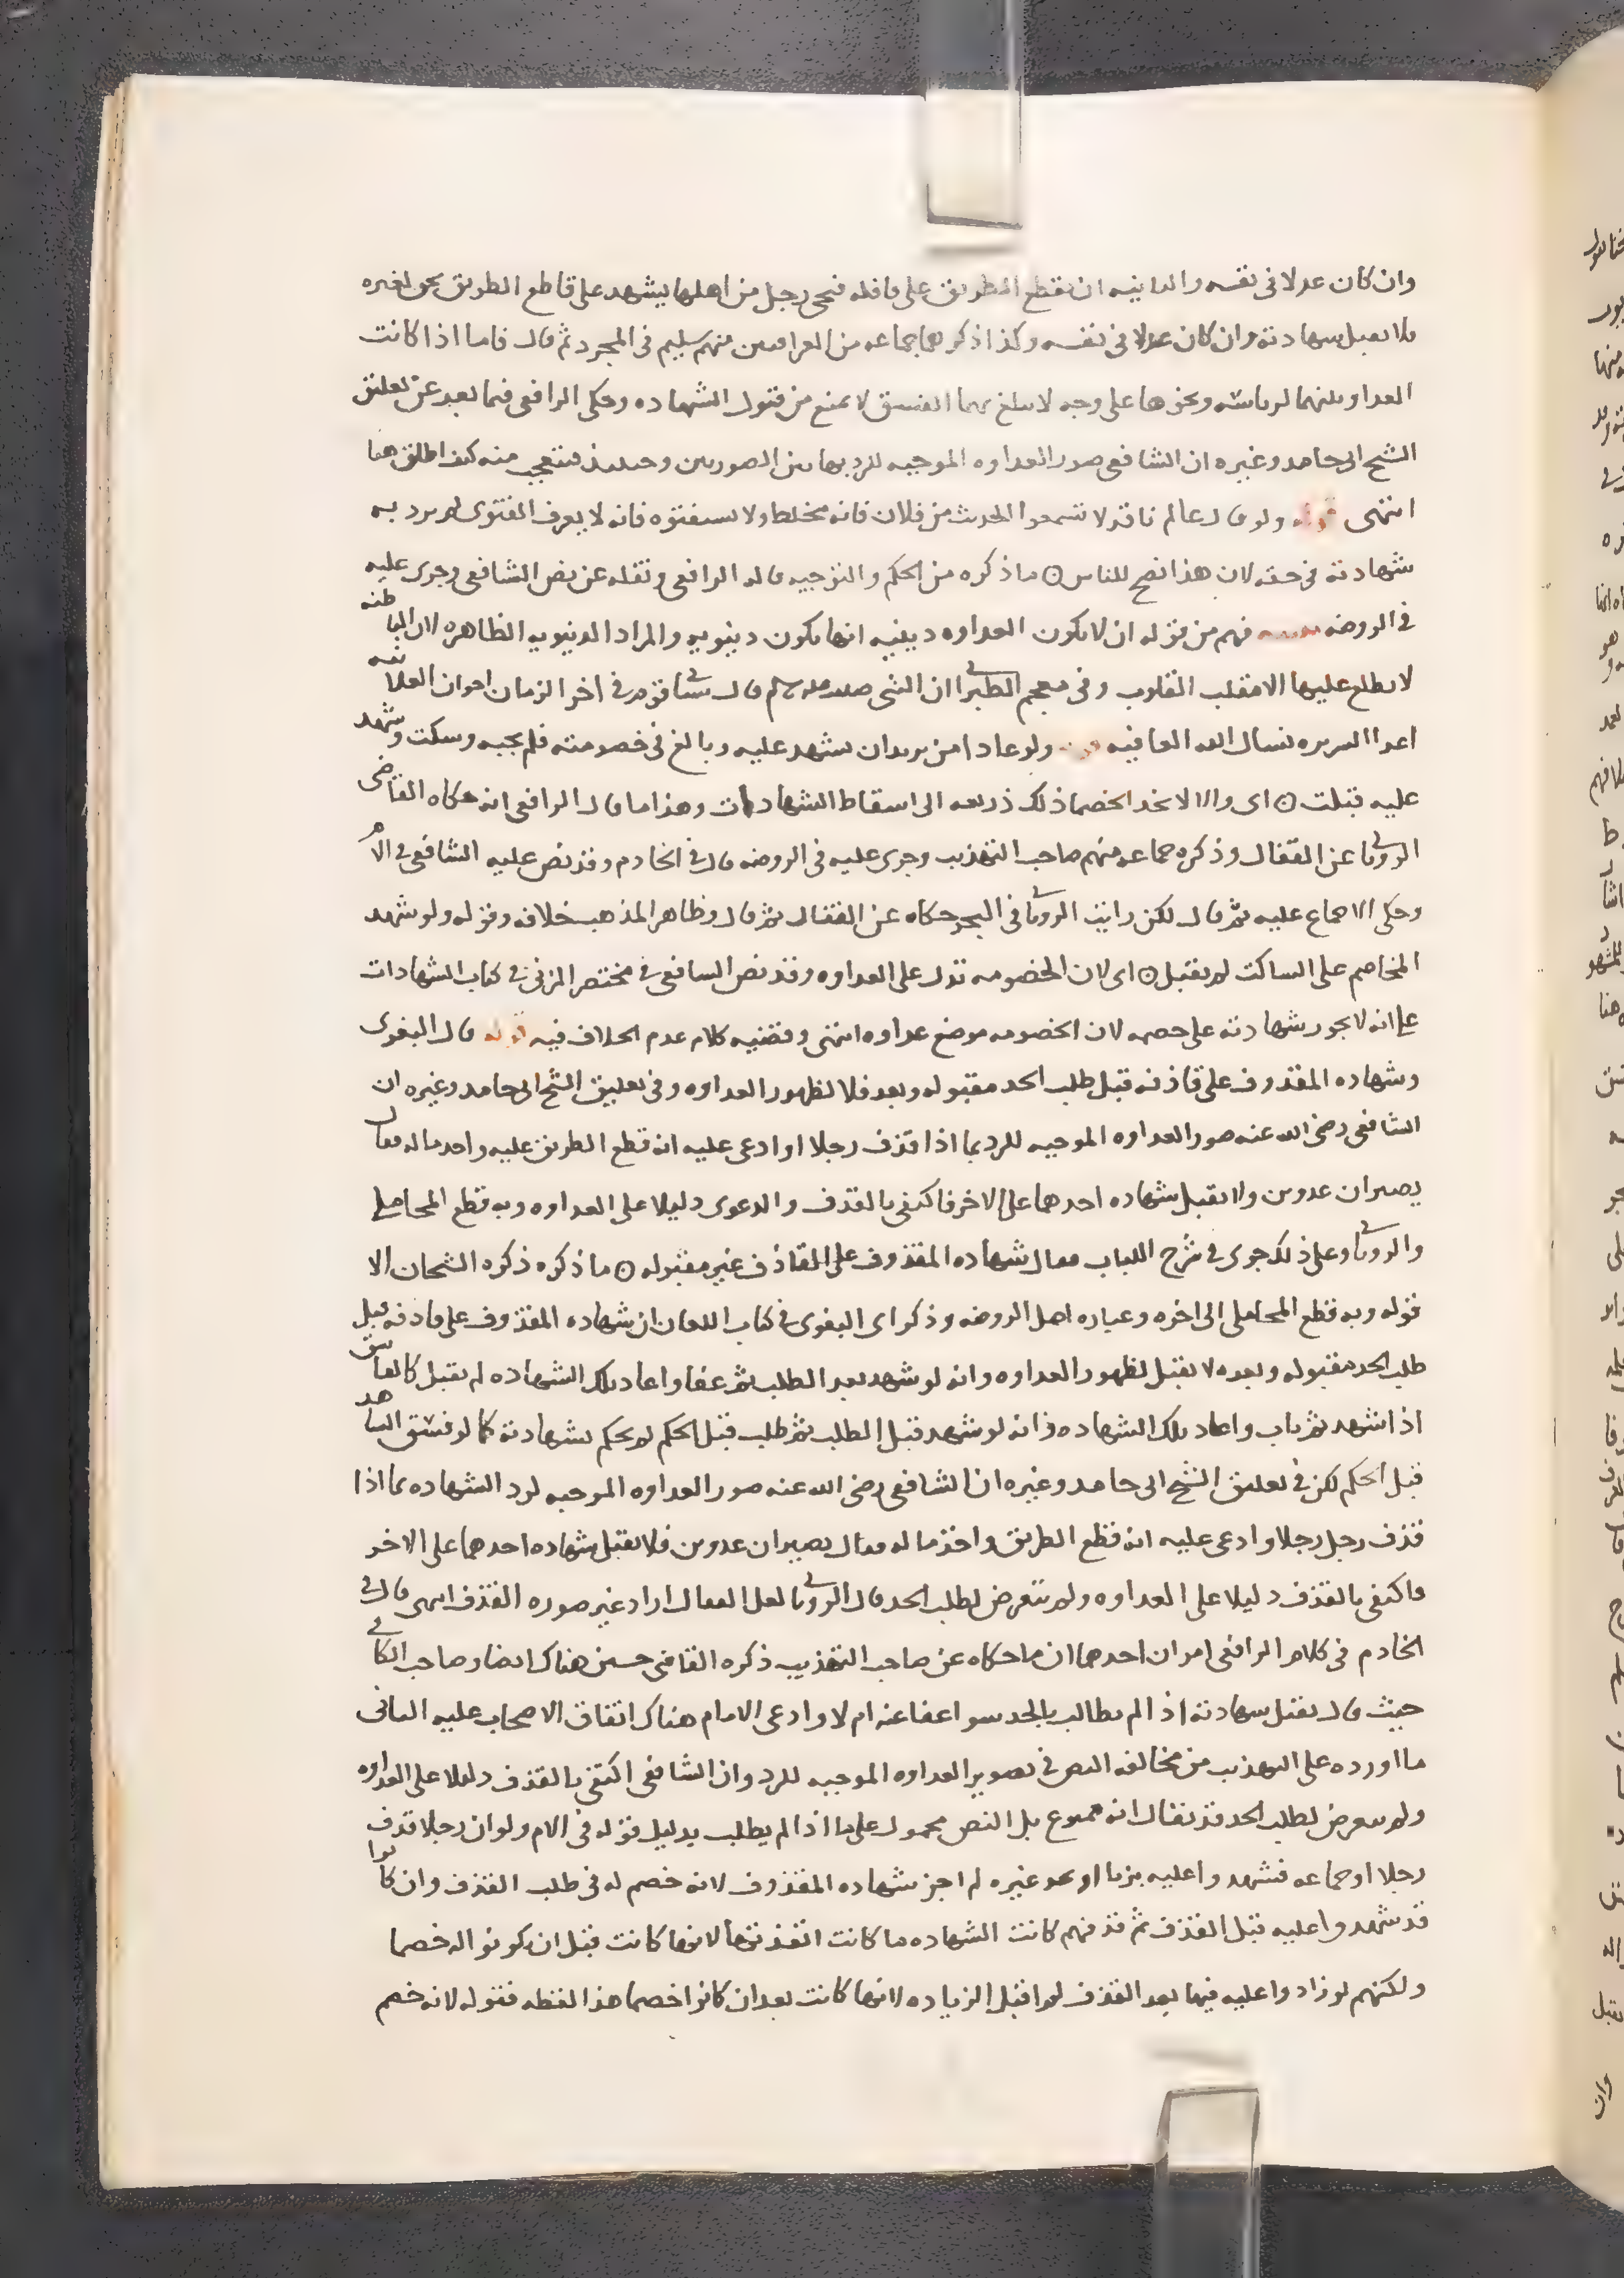 وان كان عدلا في نفسه والثانيه ان يقطع الطريق على قافله فيجى رجل من اهلها يشهد على قاطع الطريق بحق لغيره
فلا تقبل شهادته وان كان عدلا في نفسه وكذا ذكرهما جماعه من العراقيين منهم سليم في المجرد ثم قال فاما اذا كانت
العداوه بينهما لرياسة ونحوها على وجه لا يبلغ بهما الفسق لا يمنع من قبول الشهاده وحكى الرافعي فيما بعد عن تعليق
الشيخ ابى حامد وغيره ان الشافعي صور العداوه الموجبه للرد بهاتين الصورتين وحينئذ فيتعجب منه كيف اطلق هنا
انتهى قوله ولو قال عالم ناقد لا تسمعوا الحديث من فلان فانه مخلط ولا تستفتوه فانه لا يعرف الفتوى لم يرد به
شهادته في حقه لان هذا نصح للناس ۞ ما ذكره من الحكم والتوجيه قاله الرافعي ونقله عن نص الشافعي وجرى عليه
في الروضه تنبيه فهم من قوله ان لا تكون العداوه دينيه انها تكون دنيويه والمراد الدنيويه الظاهره لان الباطنه
لا يطلع عليها الا مقلب القلوب وفي معجم الطبراني ان النبي صلى الله عليه وسلم قال سياتي قوم في اخر الزمان اخوان العلانيه
اعدا السريره نسال الله العافيه قوله ولو عادا من يريد ان يشهد عليه وبالغ في خصومته فلم يجبه وسكت وشهد
عليه قبلت ۞ اى والا لاتخد الخصما ذلك ذريعه الى اسقاط الشهادات وهذا ما قال الرافعي انه حكاه القاضى
الرويانى عن القفال وذكره جماعه منهم صاحب التهذيب وجرى عليه في الروضه قال في الخادم وقد نص عليه الشافعي في الام
وحكى الاجماع عليه ثم قال لكن رايت الرويانى في البحر حكاه عن القفال ثم قال وظاهر المذهب خلافه وقوله ولو شهد
المخاصم على الساكت لم يقبل ۞ اى لان الخصومه تدل على العداوه وقد نص الشافعي في مختصر المزني في كتاب الشهادات
على انه لا يجوز شهادته على خصمه لان الخصومه موضع عداوه انتهى وقضيه كلام عدم الخلاف فيه قوله قال البغوى
وشهاده المقذوف على قاذفه قبل طلب الحد مقبوله وبعد فلا لظهور العداوه وفي تعليق الشيخ ابى حامد وغيره ان
الشافعي رضى الله عنه صور العداوه الموجبه للرد بما اذا قذف رجلا او ادعى عليه انه قطع الطريق عليه واخد ماله فقال
يصيران عدوين ولا تقبل شهاده احدهما على الاخر فاكتفى بالقذف والدعوى دليلا على العداوه وبه قطع المحاملى
والرويانى وعلى ذلك جرى في شرح اللباب فقال شهاده المقذوف على القاذف غير مقبوله ۞ ما ذكره ذكره الشيخان الا
قوله وبه قطع المحاملى الى اخره وعباره اصل الروضه وذكر اى البغوى في كتاب اللعان ان شهاده المقذوف على قاذفه قبل
طلب الحد مقبوله وبعده لا تقبل لظهور العداوه وانه لو شهد بعد الطلب ثم عفا واعاد تلك الشهاده لم تقبل كالفاسق
اذا شهد ثم تاب واعاد تلك الشهاده وانه لو شهد قبل الطلب ثم طلب قبل الحكم لم يحكم بشهادته كما لو فسق الشاهد
قبل الحكم لكن في تعليق الشيخ ابى حامد وغيره ان الشافعي رضى الله عنه صور العداوه الموجبه لرد الشهاده بما اذا
قذف رجل رجلا وادعى عليه انه قطع الطريق واخذ ماله فقال يصيران عدوين فلا تقبل شهاده احدهما على الاخر
فاكتفى بالقذف دليلا على العداوه ولم يتعرض لطلب الحد قال الرويانى لعل القفال اراد غير صوره القذف انتهى قال في
الخادم في كلام الرافعي امران احدهما ان ما حكاه عن صاحب التهذيب ذكره القاضى حسين هناك ايضا وصاحب الكافي
حيث قال تقبل شهادته اذ الم يطالب بالحد سوا عفا عنه ام لا وادعى الامام هناك اتفاق الاصحاب عليه الثانى
ما اورده على التهذيب من مخالفه النص في تصوير العداوه الموجبه للرد وان الشافعي اكتفى بالقذف دليلا على العداوه
ولم يتعرض لطلب الحد قد يقال انه ممنوع بل النص محمول على ما اذا لم يطلب بدليل قوله في الام ولو ان رجلا قذف
رجلا او جماعه فشهدوا عليه بزنا او بحد غيره لم اجز شهاده المقذوف لانه خصم له في طلب القذف وان كانوا
قد شهدوا عليه قبل القذف ثم قذفهم كانت الشهاده ما كانت انفذتها لانها كانت قبل ان يكونوا له خصما
ولكنهم لو زادوا عليه فيها بعد القذف لم اقبل الزياده لانها كانت بعد ان كانوا خصما هذا لفظه فقوله لانه خصم